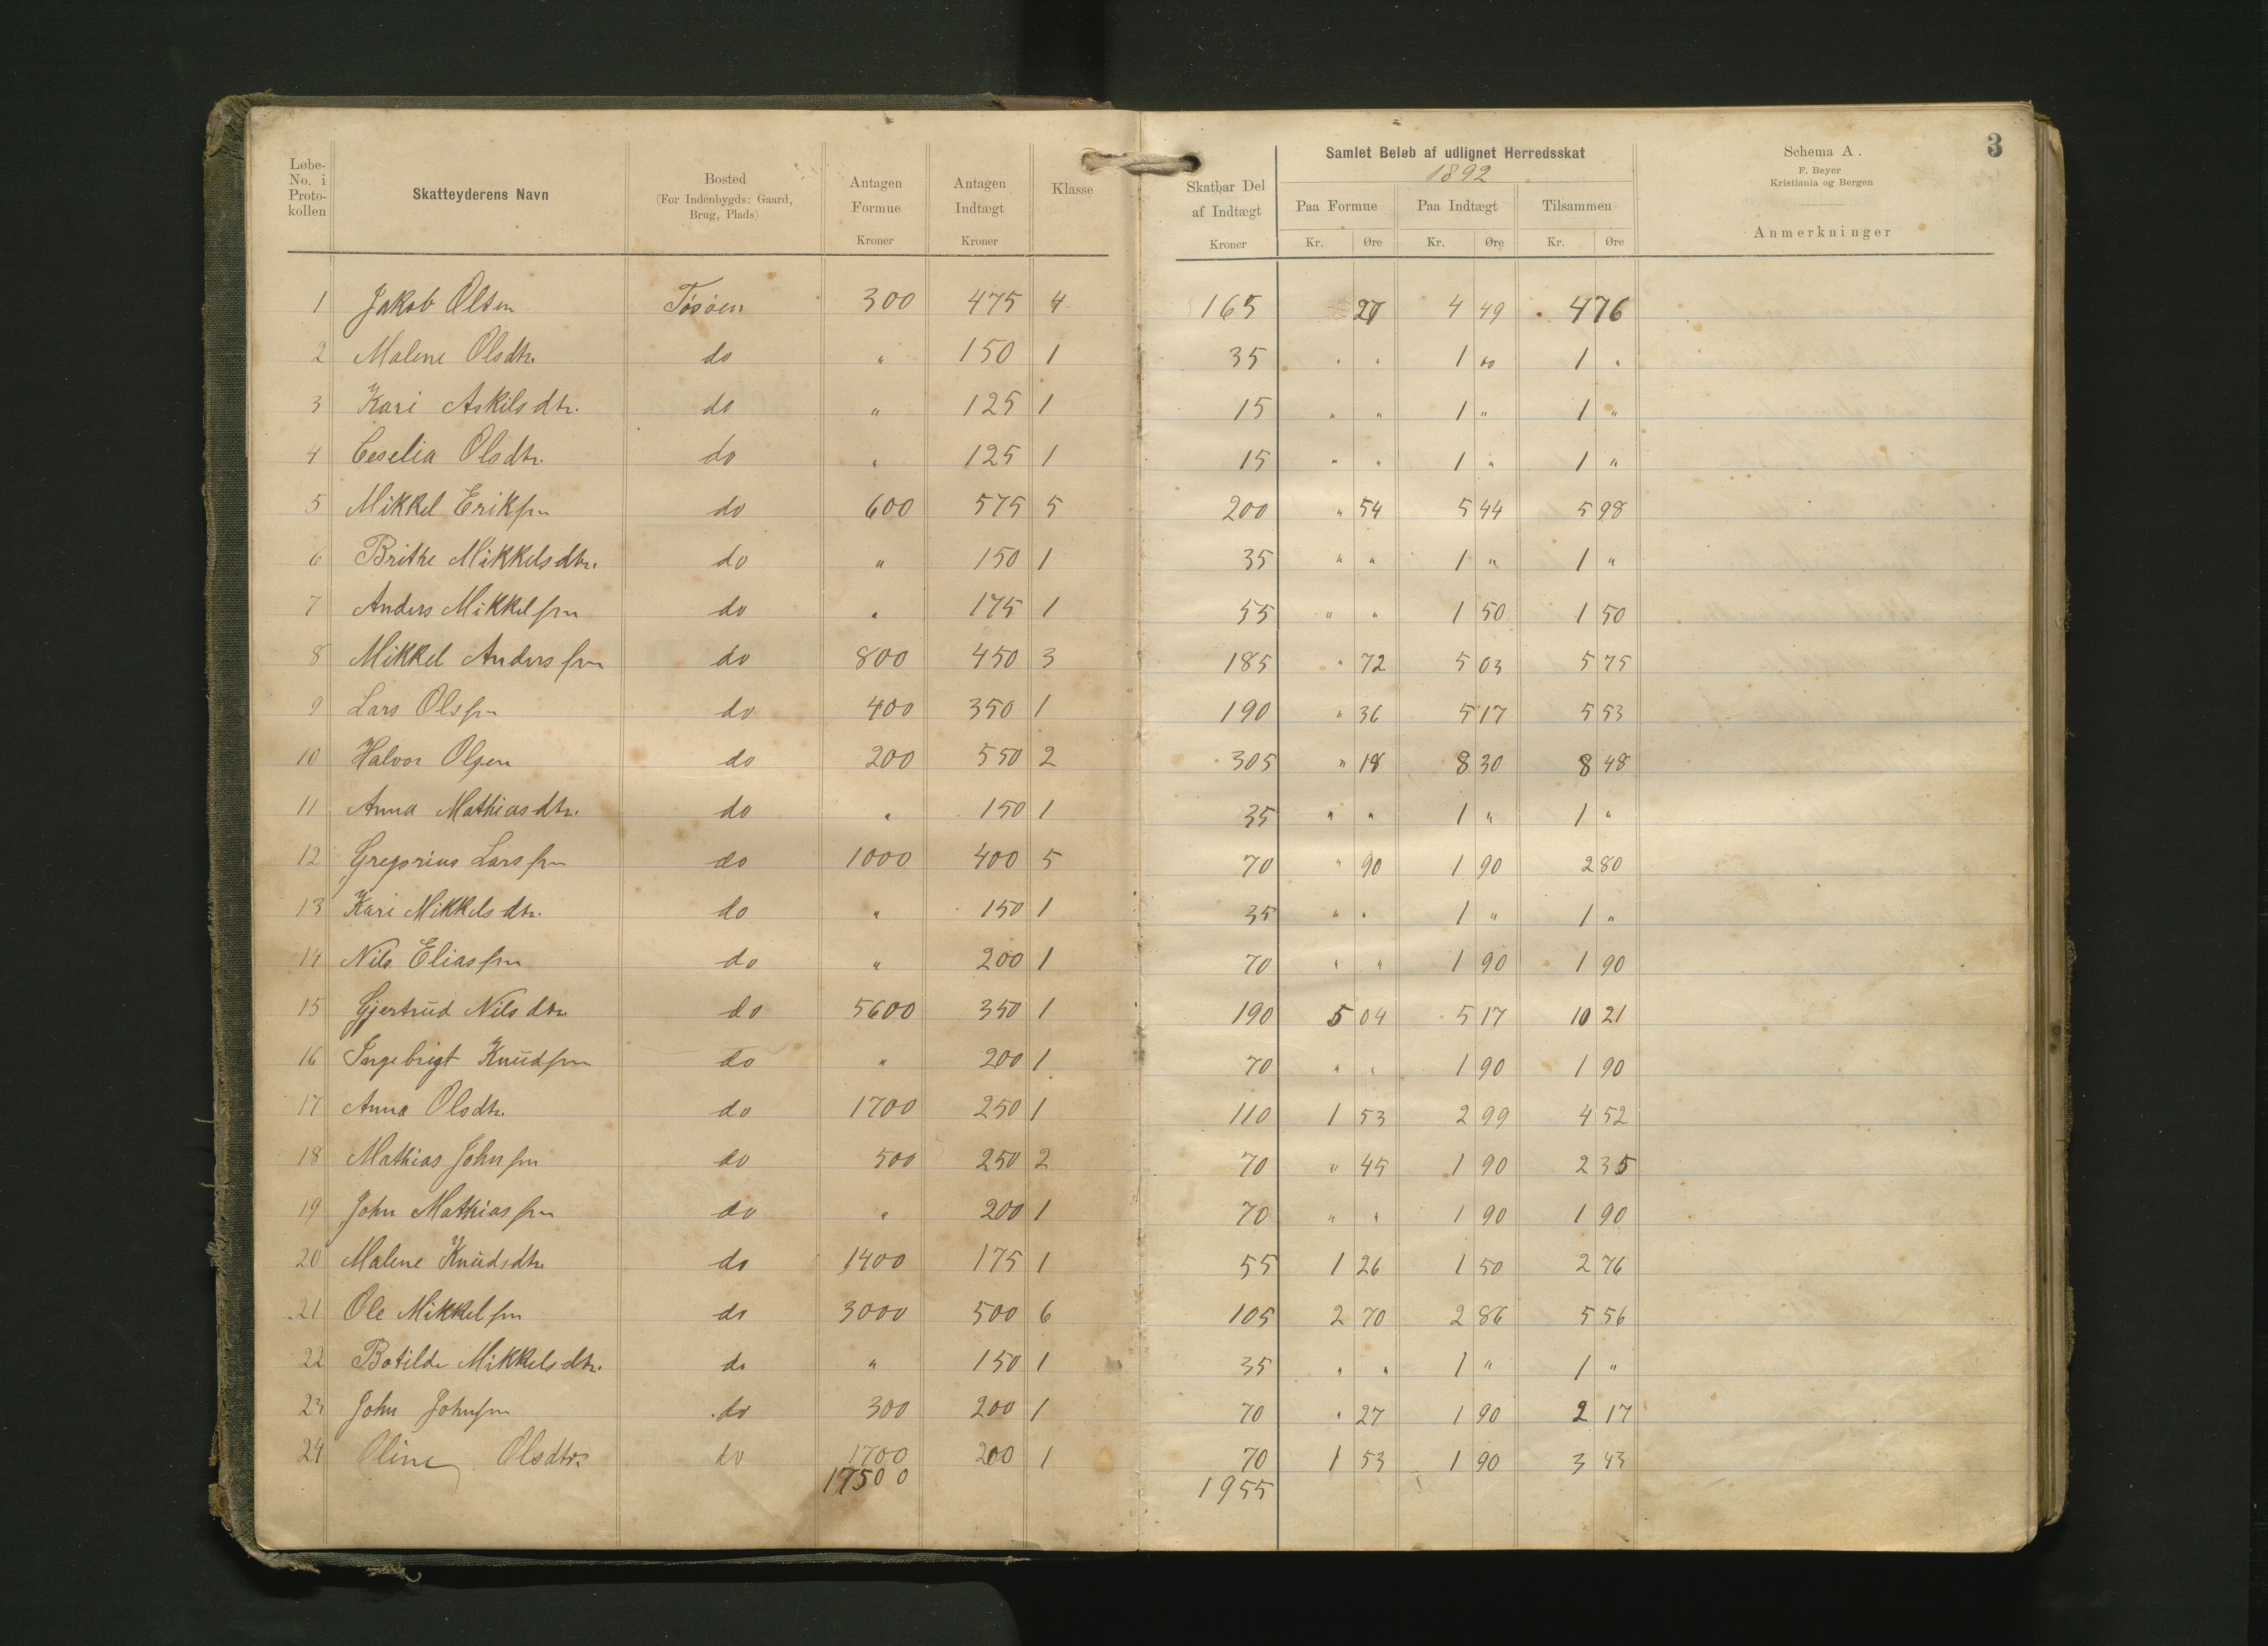 3
Løbe-No. i Proto-kollen
Skatteyderens Navn
Bosted (For Indenbygds: Gaard, Brug, Plads)
Antagen Formue Kroner
Antagen Indtægt Kroner
Klasse
Skatbar Del af Indtægt Kroner
Samlet Beløb af udlignet Herredsskat
1892
Paa Formue Paa Indtægt Tilsammen
Kr. Øre Kr. Øre Kr. Øre
Schema A.
F. Beyer
Kristiania og Bergen
Anmerkninger
1 Jakob Olsen Tösöen 300 475 4 165 27 4 49 4 76
2 Malene Olsdtr. do " 150 1 35 " " 1 " 1 "
3 Kari Askilsdtr. do " 125 1 15 " " 1 " 1 "
4 Ceselia Olsdtr. do " 125 1 15 " " 1 " 1 "
5 Mikkel Eriksen do 600 575 5 200 " 54 5 44 5 98
6 Brithe Mikkelsdtr. do " 150 1 35 " " 1 " 1 "
7 Anders Mikkelsen do " 175 1 55 " " 1 50 1 50
8 Mikkel Anderssen do 800 450 3 185 " 72 5 03 5 75
9 Lars Olssen do 400 350 1 190 " 36 5 17 5 53
10 Halvor Olsen do 200 550 2 305 " 18 8 30 8 48
11 Anna Mathiasdtr. do " 150 1 35 " " 1 " 1 "
12 Gregorius Larssen do 1000 400 5 70 " 90 1 90 2 80
13 Kari Mikkelsdtr. do " 150 1 35 " " 1 " 1 "
14 Nils Eliassen do " 200 1 70 " " 1 90 1 90
15 Gjertrud Nilsdtr. do 5600 350 1 190 5 04 5 17 10 21
16 Ingebrigt Knudsen do " 200 1 70 " " 1 90 1 90
17 Anna Olsdtr. do 1700 250 1 110 1 53 2 99 4 52
18 Mathias Johnsen do 500 250 2 70 " 45 1 90 2 35
19 John Mathiassen do " 200 1 70 " " 1 90 1 90
20 Malene Knudsdtr. do 1400 175 1 55 1 26 1 50 2 76
21 Ole Mikkelsen do 3000 500 6 105 2 70 2 86 5 56
22 Botilde Mikkelsdtr. do " 150 1 35 " " 1 " 1 "
23 John Johnsen do 300 200 1 70 " 27 1 90 2 17
24 Oline Olsdtr. do 1700 200 1 70 1 53 1 90 3 43
17500 1955